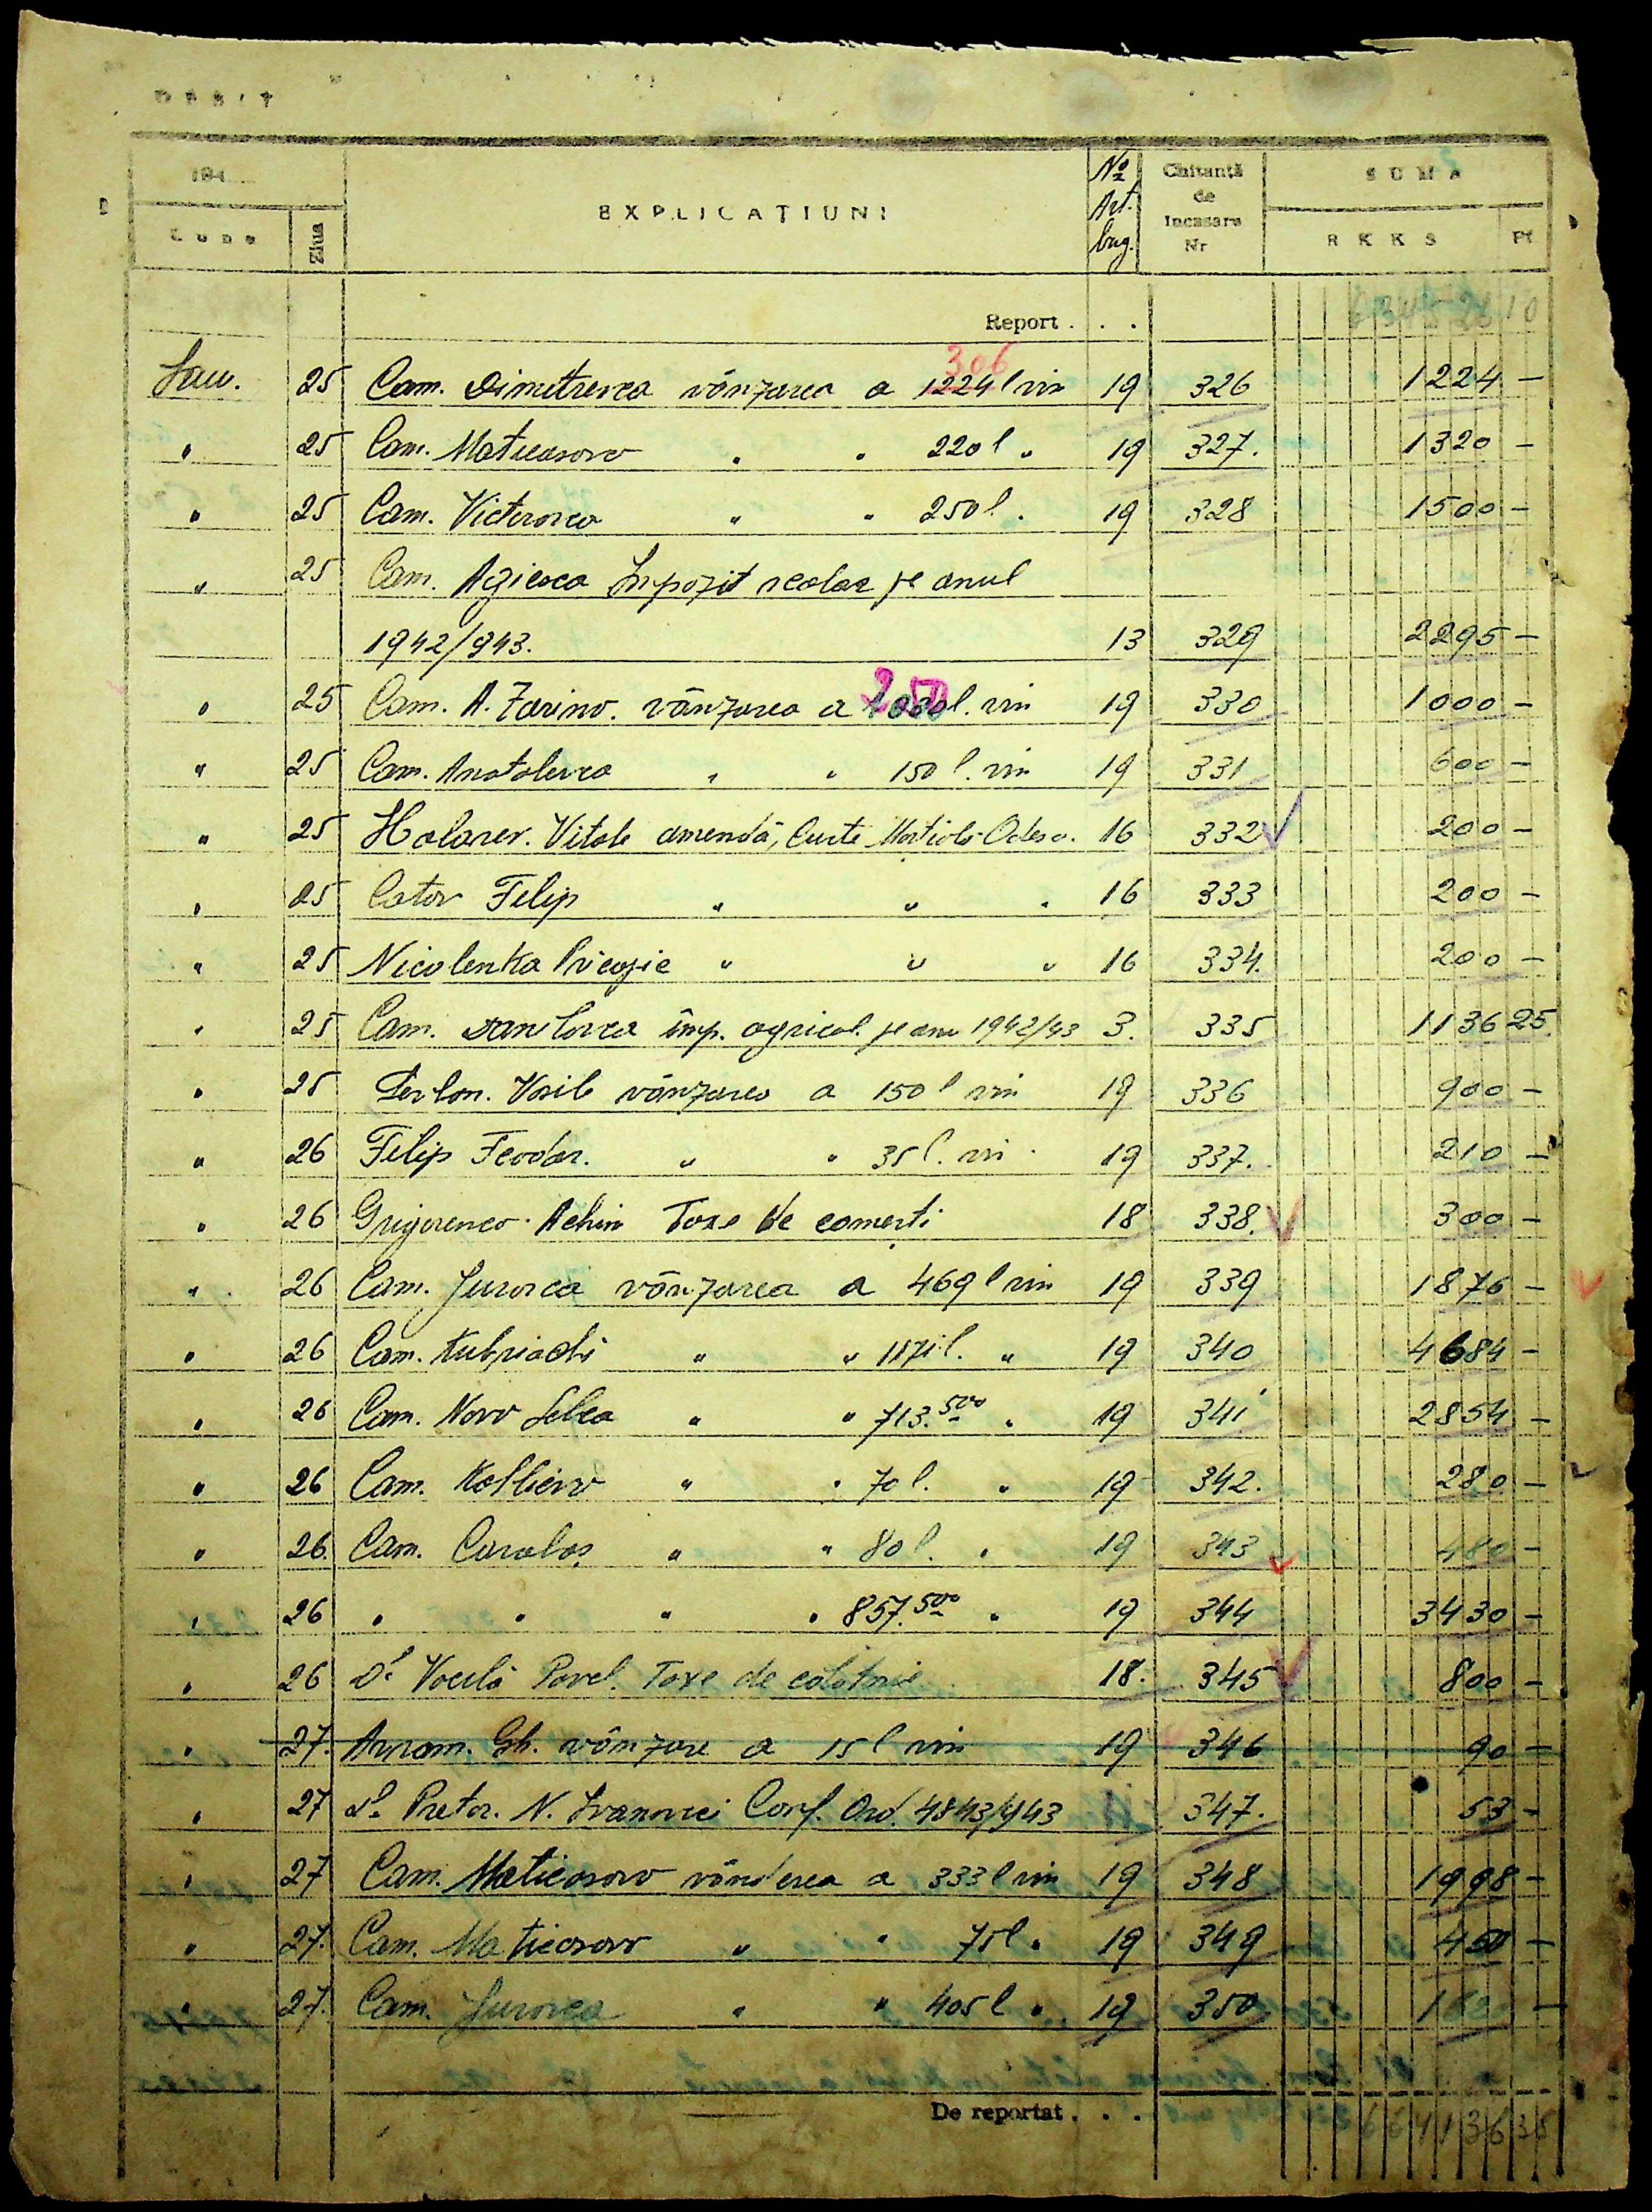 DEBIT
194
Luna Ziua EXPLICAȚIUNI No Art. bug. Chitanță de Incasare Nr SUMA RKKS Pf
Report . . . 10
Ian. 25 Com. Dimitrevca vânzarea a 1224 l vin 306 19 326 1224 —
" 25 Com. Maticasovo " " 220 l " 19 327. 1320 —
" 25 Com. Victorovca " " 250 l. 19 328 1500 —
" 25 Com. Agieoca Impozit scolar pe anul
1942/943. 13 329 2295 —
" 25 Com. A. Zarino. vânzarea a 250 l. vin 19 330 1000 —
" 25 Com. Anatolevca " " 150 l. vin 19 331 600 —
" 25 Vitale amendă, Curte Marțială Odesa. 16 332 200 —
" 25 Cator Filip " " " 16 333 200 —
" 25 Nicolenka " " " 16 334. 200 —
" 25 Com. Danilovca imp. agricol pe anu 1942/43 3. 335 1136 25
" 25 Vasile vânzarea a 150 l vin 19 336 900 —
" 26 Filip Feodor. " " 35 l. vin 19 337. 210 —
" 26 Grigorenco Achim Taxe de comerti 18 338. 300 —
" 26 Com. Jurovca vânzarea a 469 l vin 19 339 1876 —
" 26 Com. Kubriachi " " 1171 l. " 19 340 4684 —
" 26 Com. Novo Selca " " 713.500 " 19 341 2854 —
" 26 Com. " " 70 l. " 19 342. 280 —
" 26. Com. Caralaș " " 80 l. " 19 343 480 —
" 26 " " " " 857.500 " 19 344 3430 —
" 26 Dl Pavel. Taxe de 18. 345 800 —
" 27. Avram. Gh. vânzare a 15 l vin 19 346 90 —
" 27 Dl. Pretor. N. Ivanovici Conf. Ord. 4843/943 347. 53 —
" 27 Com. Maticasovo vânderea a 333 l vin 19 348 1998 —
" 27. Com. Maticasovo " " 75 l " 19 349 450 —
" 27. Com. Jurovca " " 405 l " 19 350
De reportat . . .